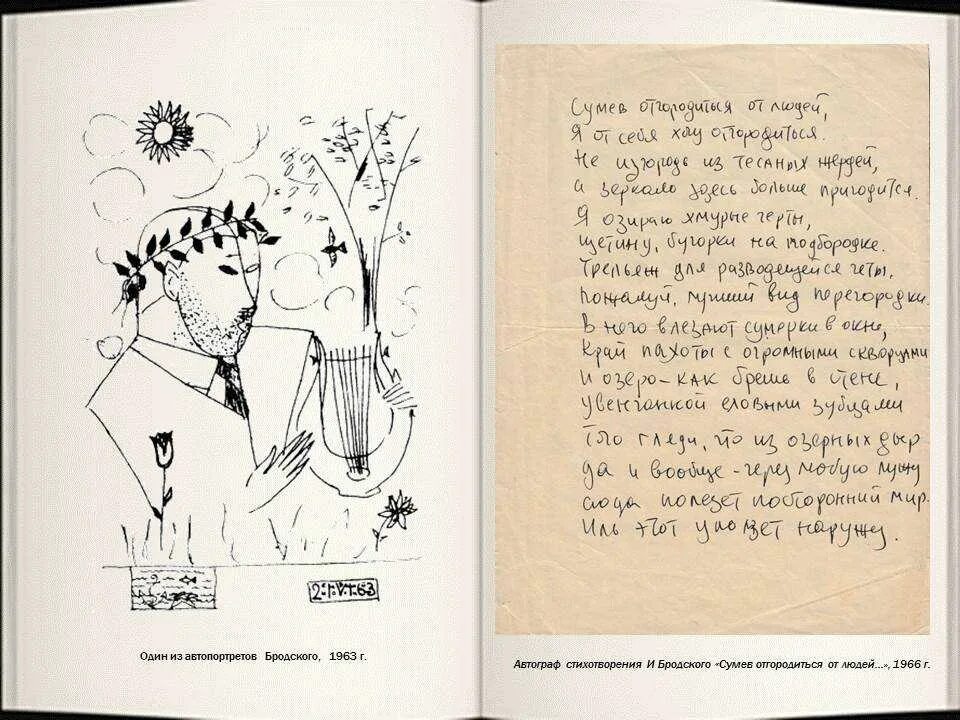 2.I.VI.63
Один из автопортретов Бродского, 1963 г.
Сумев отгородиться от людей,
Я от себя хочу отгородиться.
Не изгородь из тесаных жердей,
а зеркало здесь больше пригодится.
Я озираю хмурые черты,
щетину, бугорки на подбородке.
Трельяж для разводящейся четы,
пожалуй, лучший вид перегородки.
В него влезают сумерки в окне,
край пахоты с огромными скворцами
и озеро - как брешь в стене,
увенчанной еловыми зубцами
Того гляди, что из озерных дыр
да и вообще - через любую лужу
сюда полезет посторонний мир.
Иль этот уползет наружу.
Автограф стихотворения И Бродского «Сумев отгородиться от людей...», 1966 г.